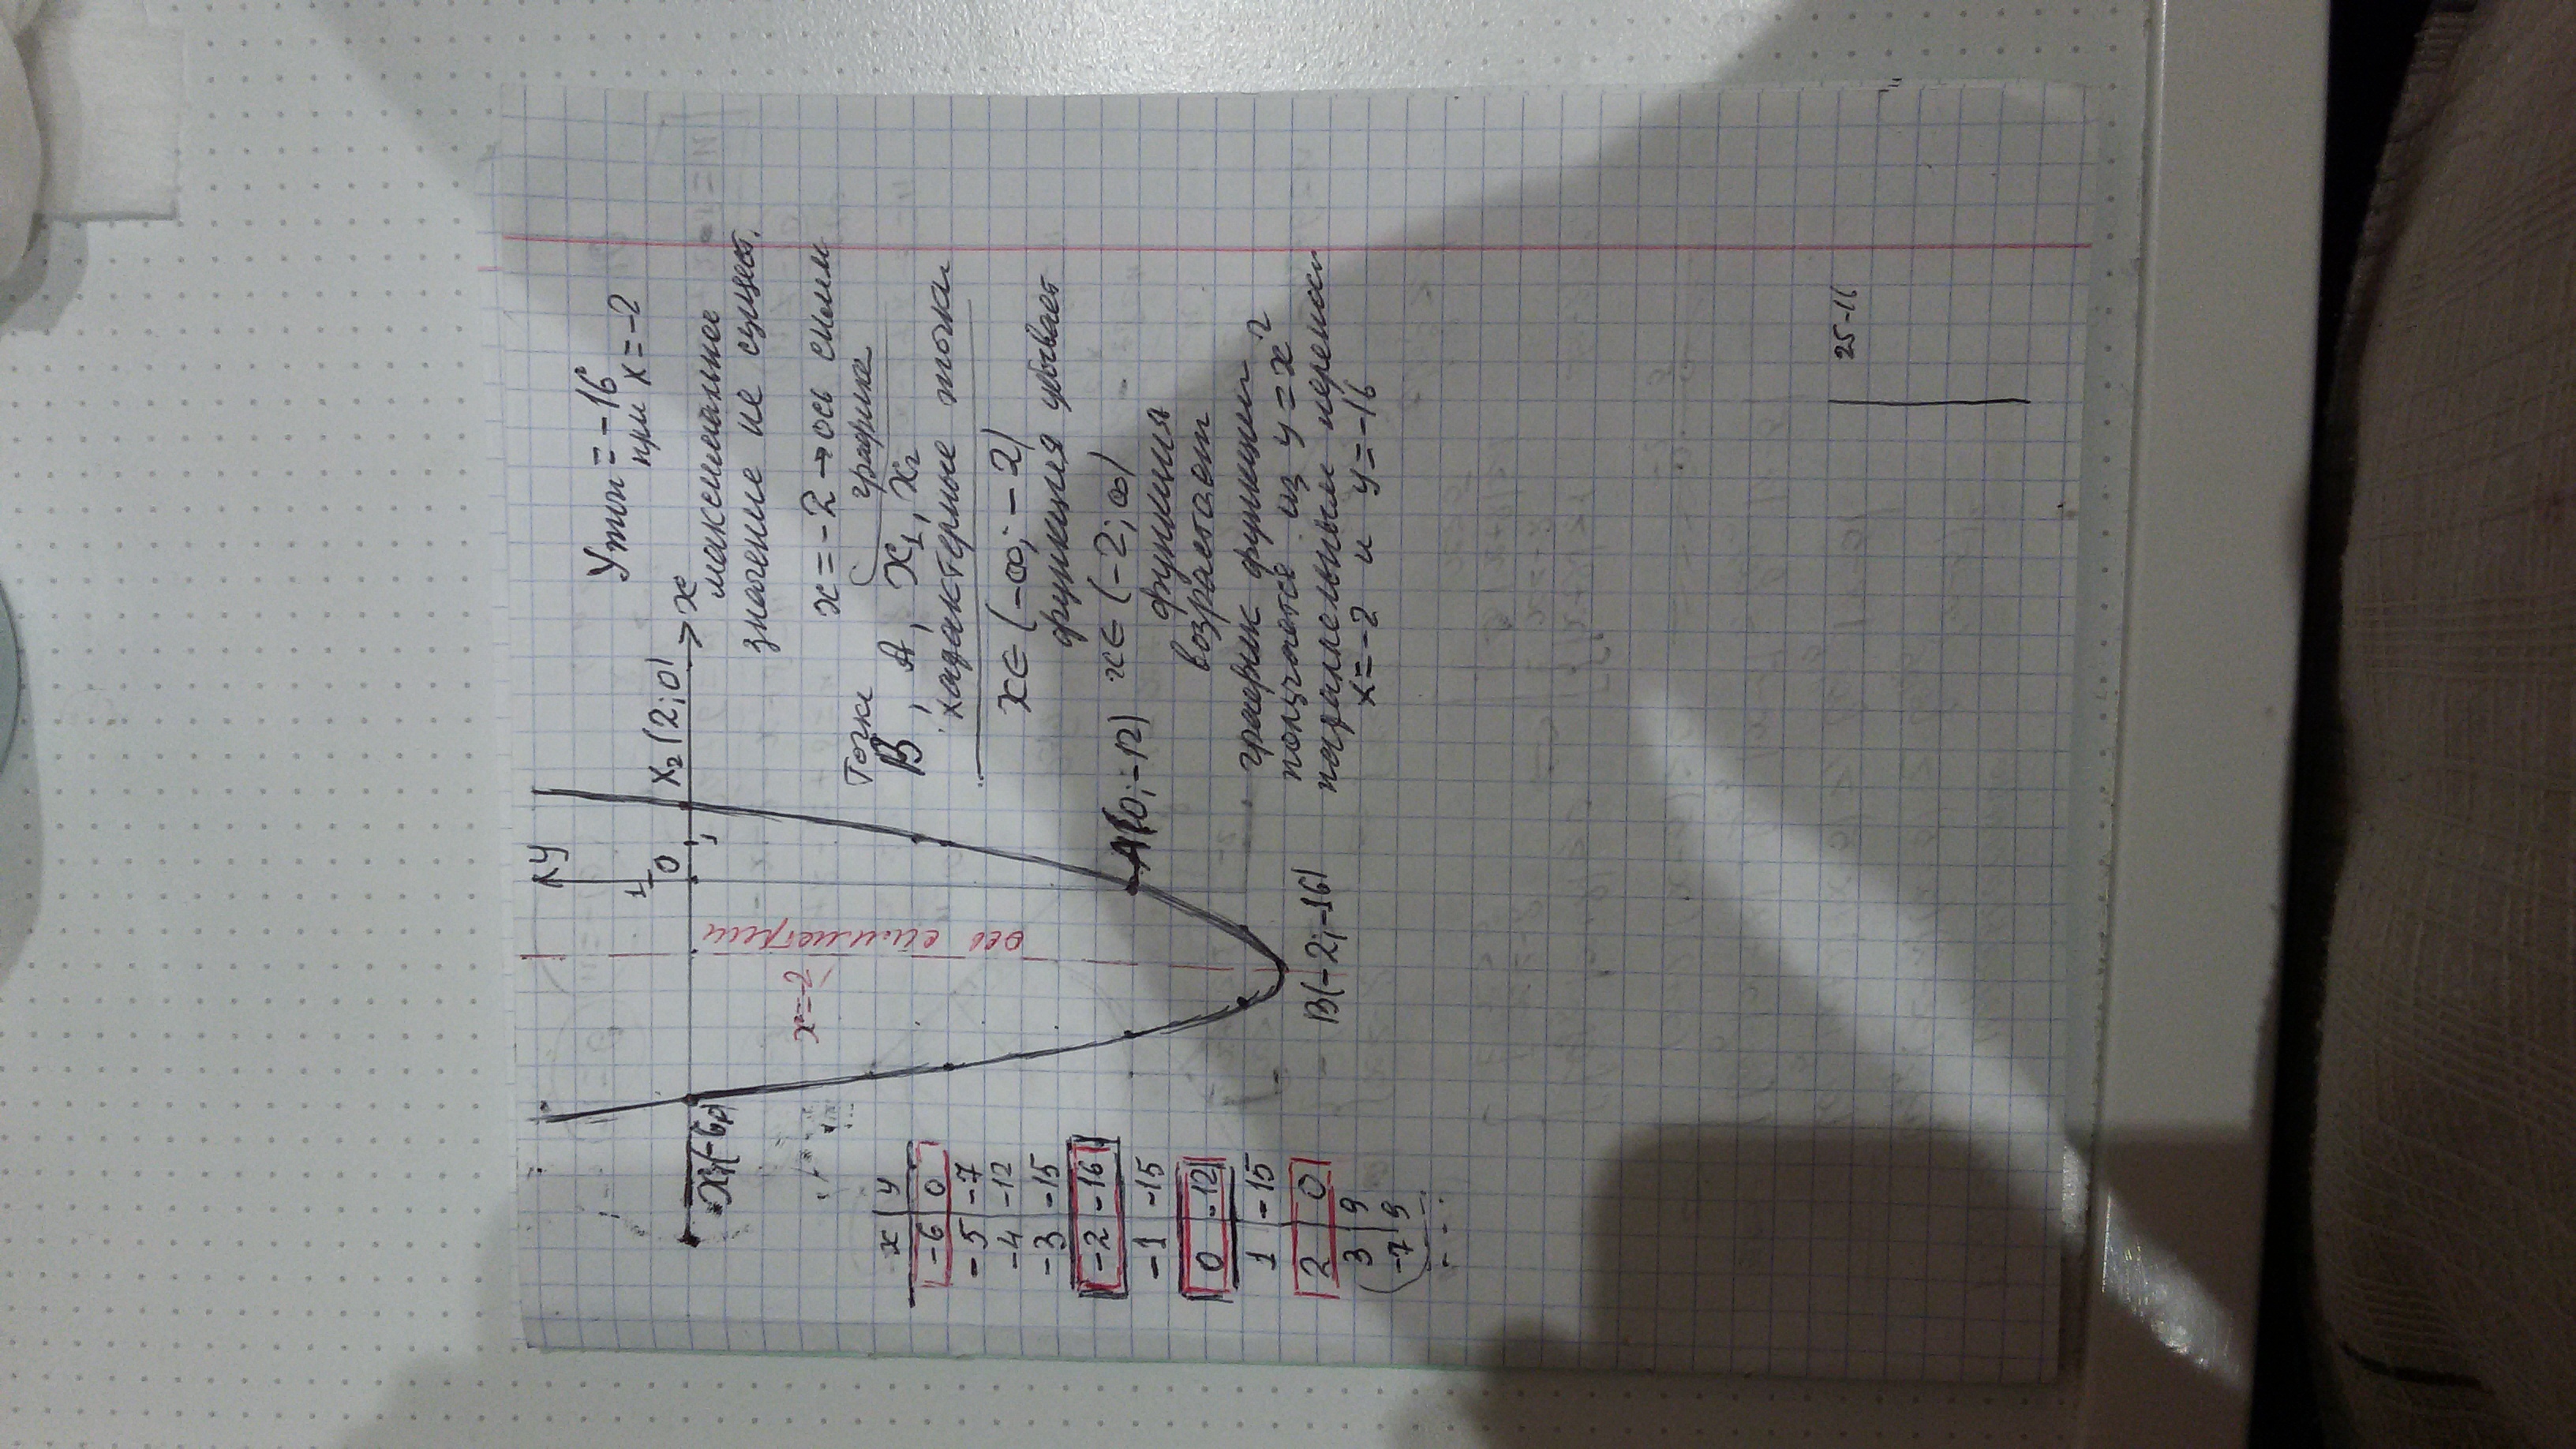 y
1
0
1
x₂(2;0)
x
x₁(-6;0)
x=-2
ось симметрии
A(0;-12)
B(-2;-16)
x | y
-6 | 0
-5 | -7
-4 | -12
-3 | -15
-2 | -16
-1 | -15
0 | -12
1 | -15
2 | 0
3 | 9
(-7 | 9
Ymin = -16
при x = -2
максимальное
значение не сущест.
x = -2 → ось симм
графика
Точки
B, A, x₁, x₂
характерные точки
x∈(-∞; -2)
функция убывает
x∈(-2; ∞)
функция
возрастает
график функции
получается из y = x²
параллельным
x = -2 и y = -16
25-16